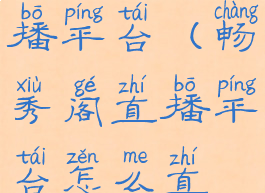 bō píng tái chàng
播平台（畅
xiù gé zhí bō píng
秀阁直播平
tái zěn me zhí
台怎么直